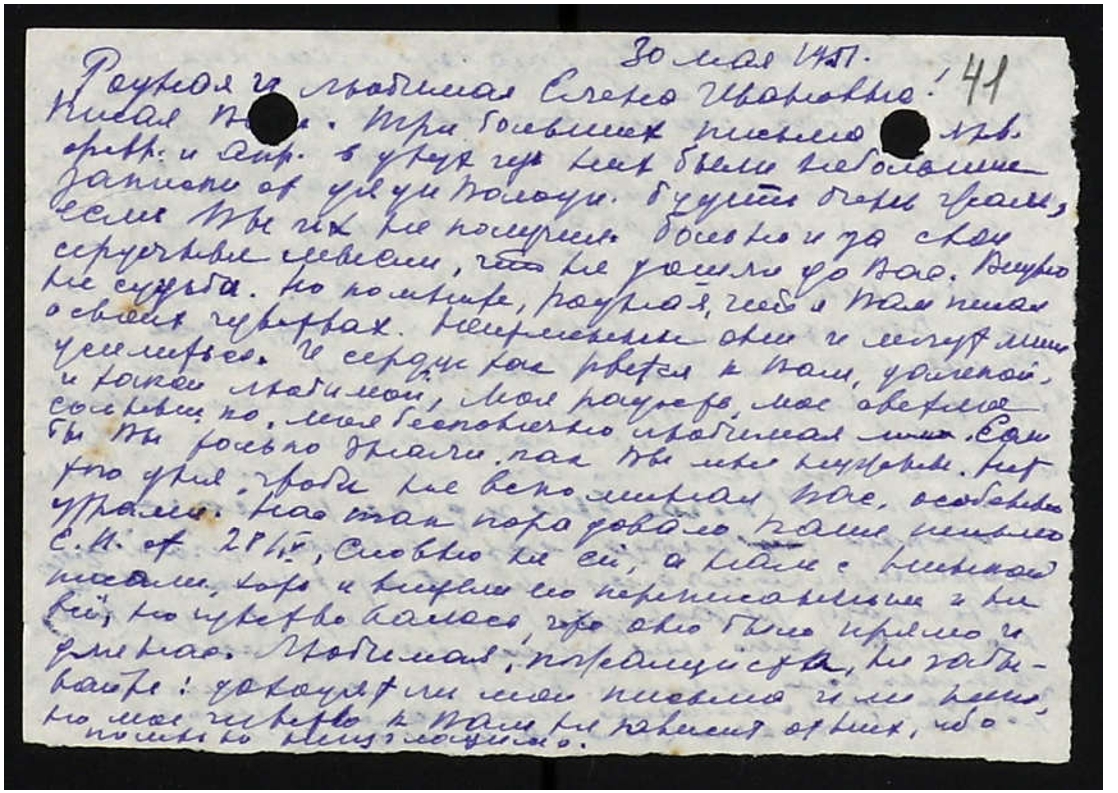 30 мая 1951. 41
Родная и любимая Елена Ивановна!
Писал В. Три больших письма янв.
февр. и апр. в двух из них были небольшие
записки от дяди Володи. Будет очень жаль,
если Вы их не получили. Больно и за свои
сердечные мысли, что не дошли до Вас. Видно
не судьба. Но помните, родная, что я Вам писал
о своих чувствах. Неизменны они и могут лишь
усилиться. И сердце так рвется к Вам, далекой,
и такой любимой, моя радость, мое светлое
солнышко, моя бесконечно любимая. Если
бы Вы только знали, как Вы мне нужны. Нет
того дня, чтобы не вспоминал Вас, особенно
утрами. Нас так порадовало Ваше письмо
с.н. от 28/IV, словно не ей, а нам с
писали, хотя и видели его переписанным и не
всё, но чувствовалось, что оно было прямо и
для нас. Любимая, пожалуйста, не забы-
вайте! доходят ли мои письма или нет,
но мое чувство к Вам не зависит от них, ибо
полно неизгладимо.